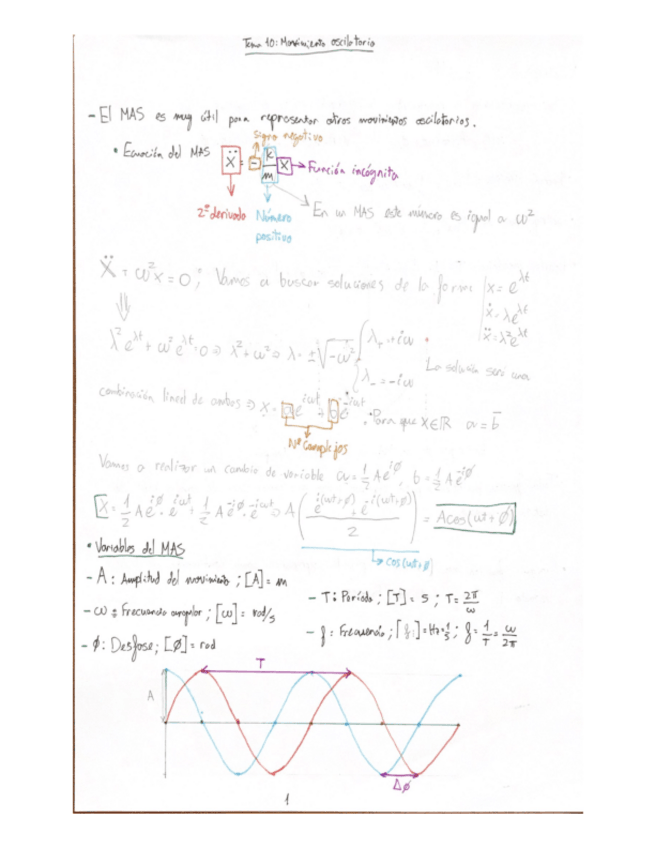 Tema 10: Movimiento oscilatorio
- El MAS es muy útil para representar otros movimientos oscilatorios.
signo negativo
• Ecuación del MAS ẍ = - k/m x → Función incógnita
2ª derivada Número positivo
En un MAS este número es igual a ω²
ẍ = ω²x = 0; Vamos a buscar soluciones de la forma x = e^λt
ẋ = λe^λt
ẍ = λ²e^λt
λ²e^λt + ω²e^λt = 0 ⇒ λ² + ω² = 0 ⇒ λ = ±√-ω² { λ₊ = +iω
λ₋ = -iω
La solución será una
combinación lineal de ambos ⇒ x = a e^iωt + b e^-iωt. Para que x∈ℝ a = b̄
Nº Complejos
Vamos a realizar un cambio de variable a = 1/2 A e^iφ, b = 1/2 A e^-iφ
x = 1/2 A e^iφ · e^iωt + 1/2 A e^-iφ · e^-iωt = A (e^i(ωt+φ) + e^-i(ωt+φ) / 2) = A cos(ωt + φ)
→ cos(ωt+φ)
• Variables del MAS
- A: Amplitud del movimiento; [A] = m
- ω: Frecuencia angular; [ω] = rad/s
- φ: Desfase; [φ] = rad
- T: Período; [T] = s; T = 2π/ω
- f: Frecuencia; [f] = Hz = 1/s; f = 1/T = ω/2π
T
A
Δφ
1